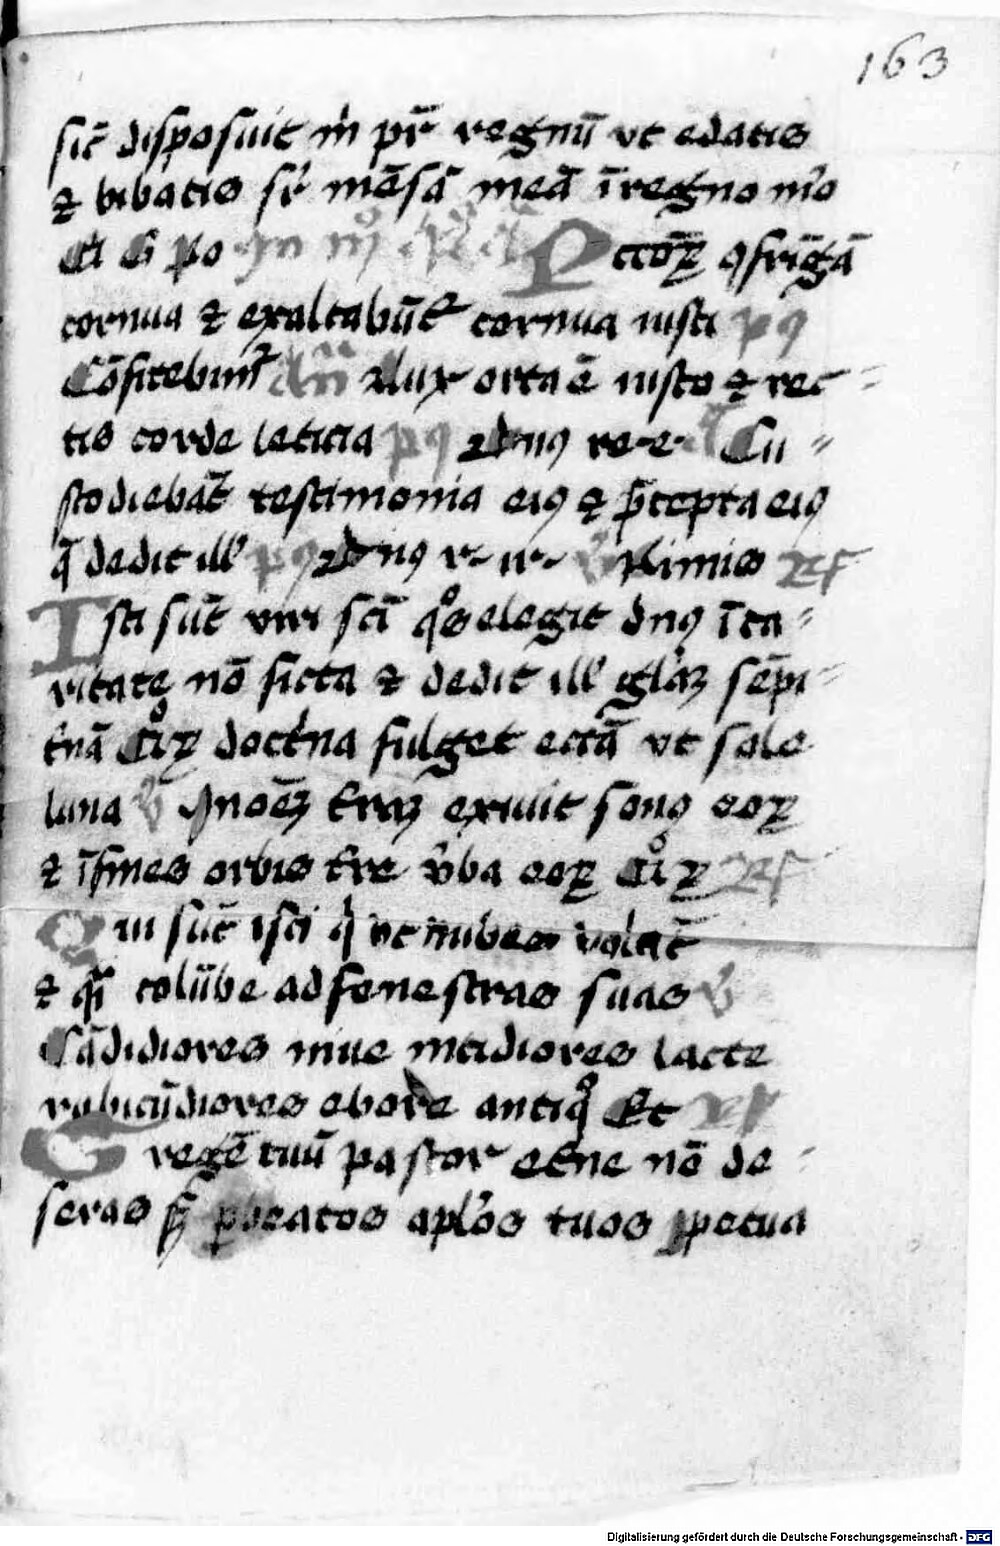 163
sic̄ disposuit m̄ pr̄ regnū ut edatis
⁊ bibatis sr̄ mēsā meā ī regno mō
Et G po In
Peccoꝝ ꝯfrīgā
cornua ⁊ exaltabūt cornua iusti pꝯ
Cōfitebunt᷑ dn̄ Lux orta ē iusto ⁊ rec=
tis corde leticia pꝯ Dnꝯ re-e- Cu=
stodiebāt testimonia eiꝯ ⁊ p̄cepta eiꝯ
q̄ dedit ill' pꝯ Dnꝯ r- ir- v̄ Nimis R͛
Isti sūt viri scī qͦs elegit dnꝯ ī ca=
ritate nō ficta ⁊ dedit ill' gl'aꝫ sēpi=
t̄nā Qͦꝝ doct͛na fulget eccā ut sole
luna v̄ In oēꝫ t͛raꝫ exiuit sonꝯ eoꝝ
⁊ ī fines orbis t͛re v͛ba eoꝝ Qͦꝝ R͛
Qui sūt isti q' ut nubes volāt
⁊ qͣi colūbe ad fenestras suas v̄
Cādidiores niue nitidiores lacte
rubicūdiores ebore antiqͦ Et R͛
Gregē tuū pastor et͛ne nō de=
seras sꝫ p beatos apl'os tuos ꝓpetua
Digitalisierung gefördert durch die Deutsche Forschungsgemeinschaft - DFG